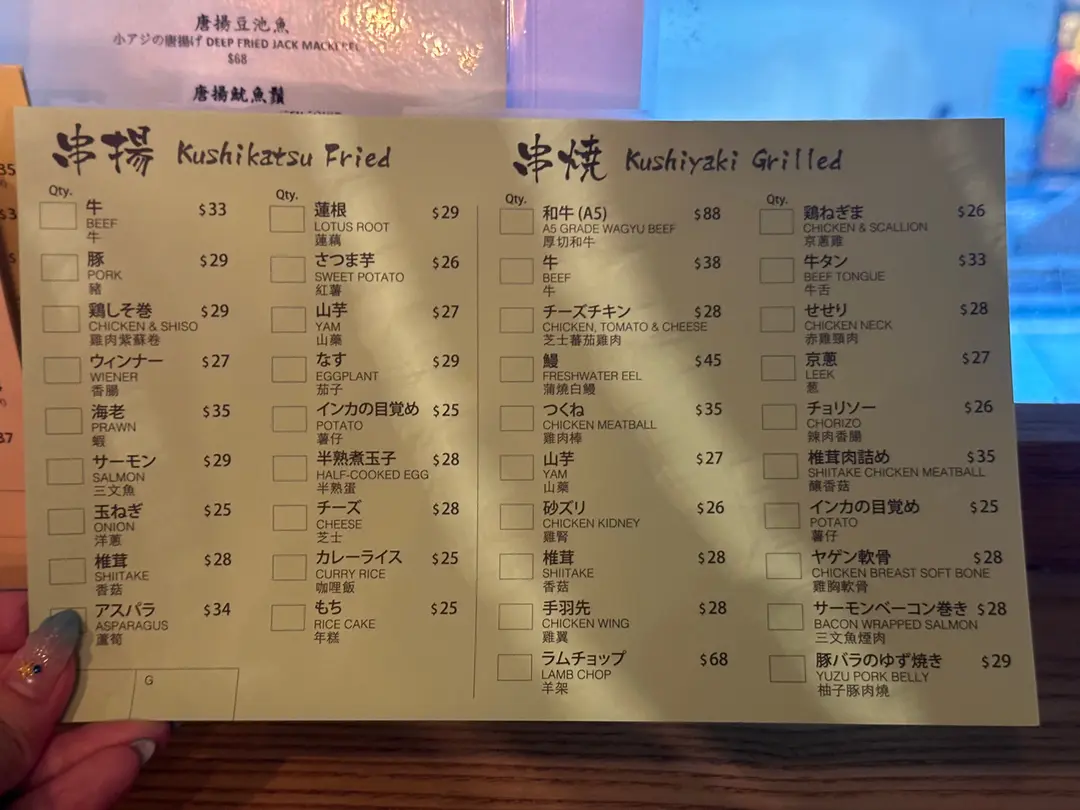 唐揚豆池魚
小アジの唐揚げ DEEP FRIED JACK MACKEREL
$68
唐揚魷魚鬚
串揚 Kushikatsu Fried
Qty.
牛 $33
BEEF
牛
豚 $29
PORK
豬
鶏しそ巻 $29
CHICKEN & SHISO
雞肉紫蘇卷
ウィンナー $27
WIENER
香腸
海老 $35
PRAWN
蝦
サーモン $29
SALMON
三文魚
玉ねぎ $25
ONION
洋蔥
椎茸 $28
SHIITAKE
香菇
アスパラ $34
ASPARAGUS
蘆筍
Qty.
蓮根 $29
LOTUS ROOT
蓮藕
さつま芋 $26
SWEET POTATO
紅薯
山芋 $27
YAM
山藥
なす $29
EGGPLANT
茄子
インカの目覚め $25
POTATO
薯仔
半熟煮玉子 $28
HALF-COOKED EGG
半熟蛋
チーズ $28
CHEESE
芝士
カレーライス $25
CURRY RICE
咖哩飯
もち $25
RICE CAKE
年糕
G
串焼 Kushiyaki Grilled
Qty.
和牛 (A5) $88
A5 GRADE WAGYU BEEF
厚切和牛
牛 $38
BEEF
牛
チーズチキン $28
CHICKEN, TOMATO & CHEESE
芝士蕃茄雞肉
鰻 $45
FRESHWATER EEL
蒲燒白鰻
つくね $35
CHICKEN MEATBALL
雞肉棒
山芋 $27
YAM
山藥
砂ズリ $26
CHICKEN KIDNEY
雞腎
椎茸 $28
SHIITAKE
香菇
手羽先 $28
CHICKEN WING
雞翼
ラムチョップ $68
LAMB CHOP
羊架
Qty.
鶏ねぎま $26
CHICKEN & SCALLION
京蔥雞
牛タン $33
BEEF TONGUE
牛舌
せせり $28
CHICKEN NECK
赤雞頸肉
京蔥 $27
LEEK
葱
チョリソー $26
CHORIZO
辣肉香腸
椎茸肉詰め $35
SHIITAKE CHICKEN MEATBALL
釀香菇
インカの目覚め $25
POTATO
薯仔
ヤゲン軟骨 $28
CHICKEN BREAST SOFT BONE
雞胸軟骨
サーモンベーコン巻き $28
BACON WRAPPED SALMON
三文魚煙肉
豚バラのゆず焼き $29
YUZU PORK BELLY
柚子豚肉燒